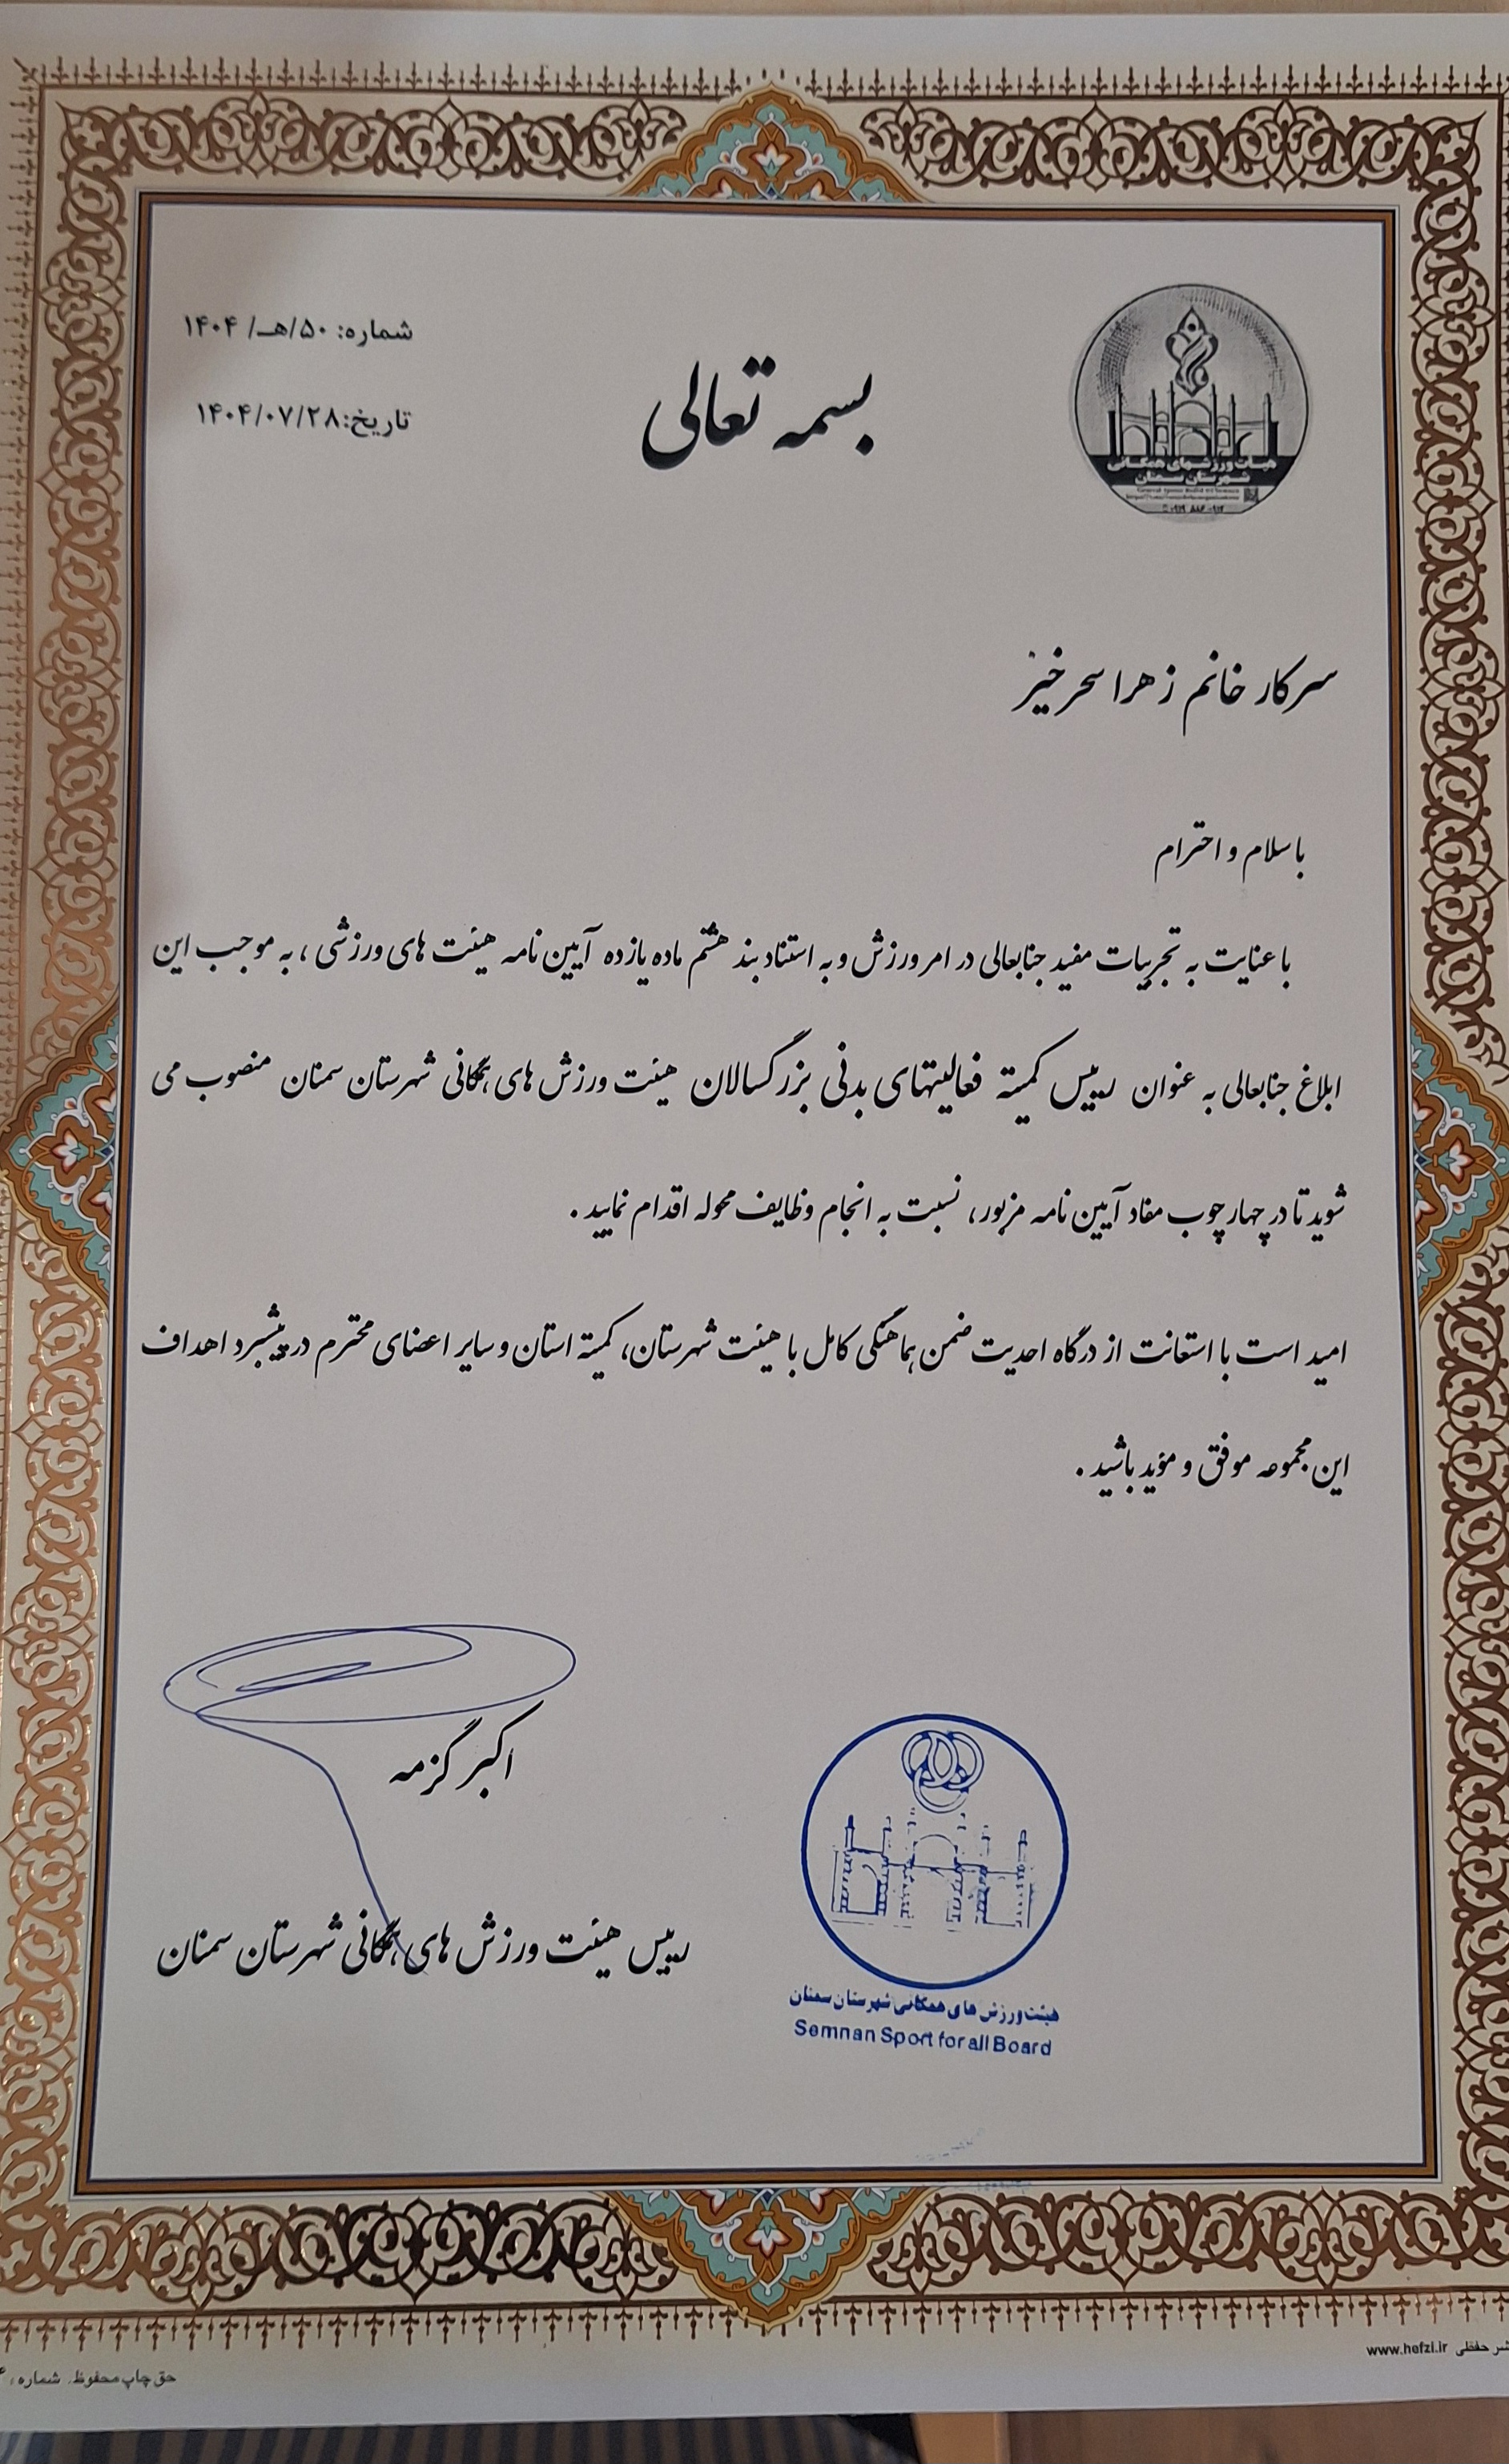 بسمه تعالی
شماره: ۵۰/هـ/ ۱۴۰۴
تاریخ:۱۴۰۴/۰۷/۲۸
هیات ورزشهای همگانی
شهرستان سمنان
سرکار خانم زهرا سحرخیز
با سلام و احترام
با عنایت به تجربیات مفید جنابعالی در امر ورزش و به استناد بند هشتم ماده یازده آیین نامه هیئت های ورزشی ، به موجب این
ابلاغ جنابعالی به عنوان رییس کمیته فعالیتهای بدنی بزرگسالان هیئت ورزش های همگانی شهرستان سمنان منصوب می
شوید تا در چهارچوب مفاد آیین نامه مزبور، نسبت به انجام وظایف محوله اقدام نمایید .
امید است با استعانت از درگاه احدیت ضمن هماهنگی کامل با هیئت شهرستان، کمیته استان و سایر اعضای محترم در پیشبرد اهداف
این مجموعه موفق و مؤید باشید .
اکبر گزمه
رییس هیئت ورزش های همگانی شهرستان سمنان
هیئت ورزش های همگانی شهرستان سمنان
Semnan Sport for all Board
حفظی www.hefzi.ir
حق چاپ محفوظ. شماره: